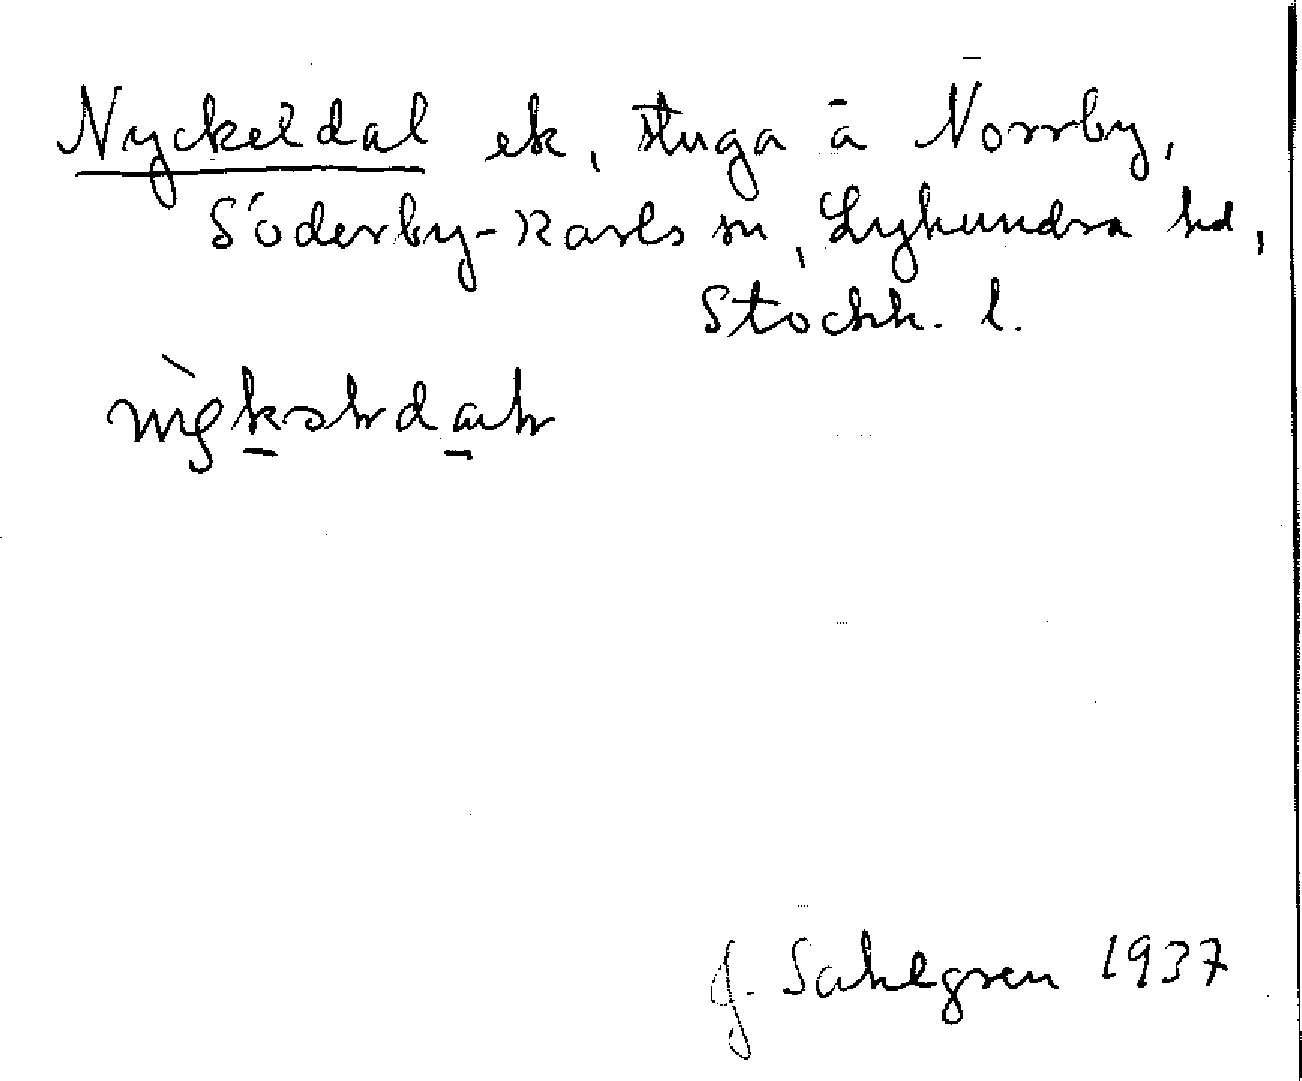 Nyckeldal ek, stuga å Norrby,
Söderby-Karls sn, Lyhundra hd,
Stockh. l.
J. Sahlgren 1937